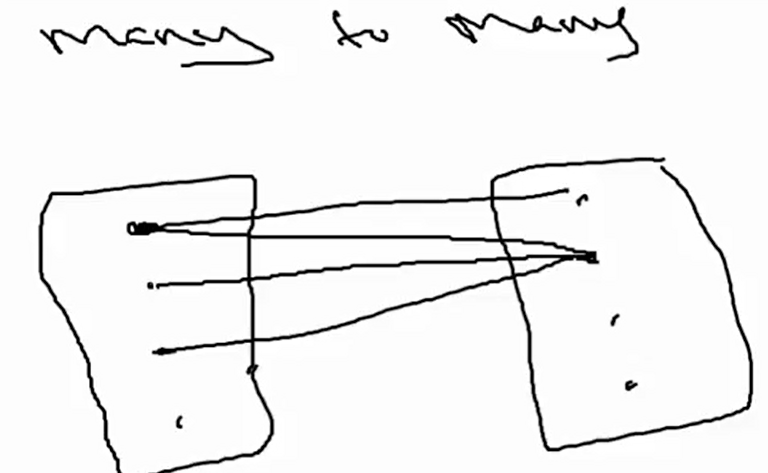 many to many